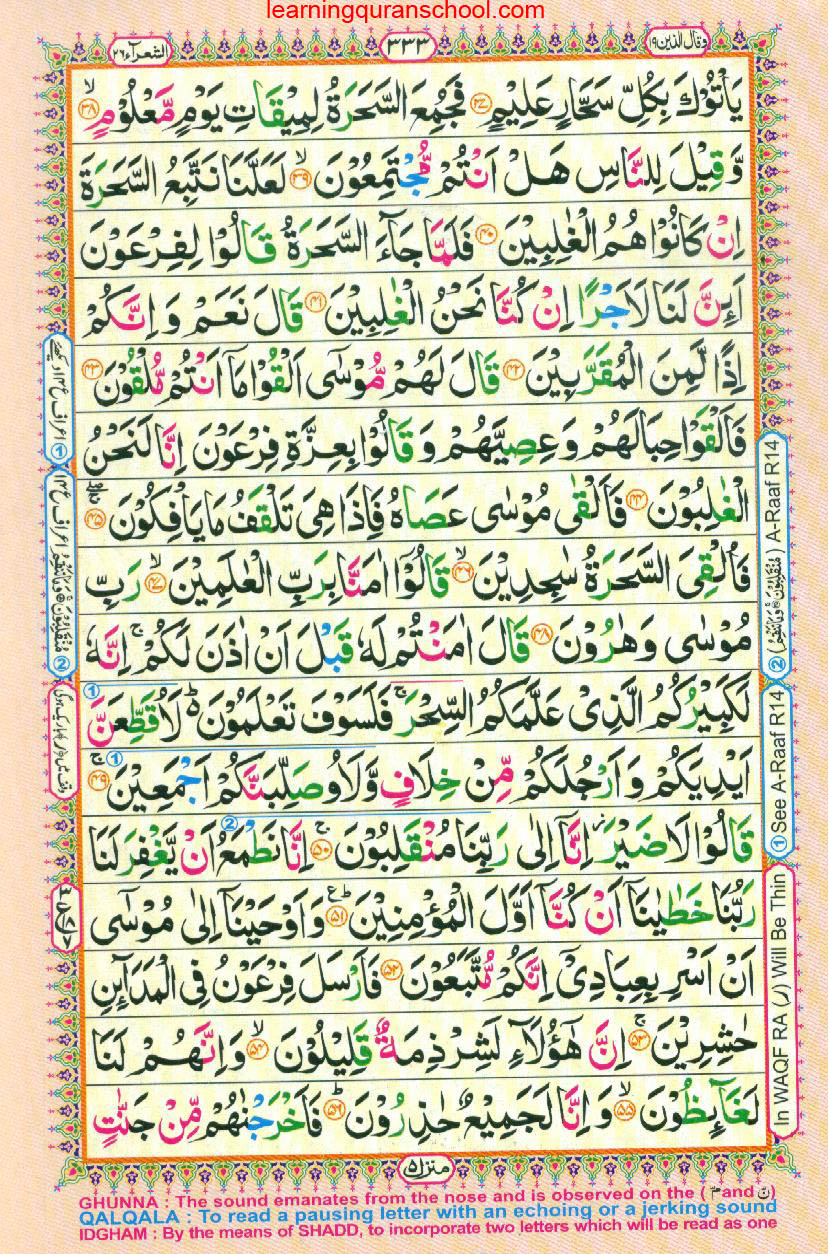 learningquranschool.com
وقال الذین ۱۹
۳۳۳
الشعرآء ۲۶
یَاْتُوْكَ بِكُلِّ سَحَّارٍ عَلِیْمٍ ۝۳۷ فَجُمِعَ السَّحَرَةُ لِمِیْقَاتِ یَوْمٍ مَّعْلُوْمٍۙ ۝۳۸
وَّقِیْلَ لِلنَّاسِ هَلْ اَنْتُمْ مُّجْتَمِعُوْنَۙ ۝۳۹ لَعَلَّنَا نَتَّبِعُ السَّحَرَةَ
اِنْ كَانُوْا هُمُ الْغٰلِبِیْنَ ۝۴۰ فَلَمَّا جَآءَ السَّحَرَةُ قَالُوْا لِفِرْعَوْنَ
اَئِنَّ لَنَا لَاَجْرًا اِنْ كُنَّا نَحْنُ الْغٰلِبِیْنَ ۝۴۱ قَالَ نَعَمْ وَ اِنَّكُمْ
اِذًا لَّمِنَ الْمُقَرَّبِیْنَ ۝۴۲ قَالَ لَهُمْ مُّوْسٰۤى اَلْقُوْا مَاۤ اَنْتُمْ مُّلْقُوْنَ ۝۴۳
فَاَلْقَوْا حِبَالَهُمْ وَ عِصِیَّهُمْ وَ قَالُوْا بِعِزَّةِ فِرْعَوْنَ اِنَّا لَنَحْنُ
الْغٰلِبُوْنَ ۝۴۴ فَاَلْقٰى مُوْسٰى عَصَاهُ فَاِذَا هِیَ تَلْقَفُ مَا یَاْفِكُوْنَ ۝۴۵
فَاُلْقِیَ السَّحَرَةُ سٰجِدِیْنَۙ ۝۴۶ قَالُوْۤا اٰمَنَّا بِرَبِّ الْعٰلَمِیْنَۙ ۝۴۷ رَبِّ
مُوْسٰى وَ هٰرُوْنَ ۝۴۸ قَالَ اٰمَنْتُمْ لَهٗ قَبْلَ اَنْ اٰذَنَ لَكُمْۚ اِنَّهٗ
لَكَبِیْرُكُمُ الَّذِیْ عَلَّمَكُمُ السِّحْرَۚ فَلَسَوْفَ تَعْلَمُوْنَ۬ؕ لَاُقَطِّعَنَّ
اَیْدِیَكُمْ وَ اَرْجُلَكُمْ مِّنْ خِلَافٍ وَّ لَاُوصَلِّبَنَّكُمْ اَجْمَعِیْنَۚ ۝۴۹
قَالُوْا لَا ضَیْرَ٘ اِنَّاۤ اِلٰى رَبِّنَا مُنْقَلِبُوْنَۚ ۝۵۰ اِنَّا نَطْمَعُ اَنْ یَّغْفِرَ لَنَا
رَبُّنَا خَطٰیٰنَاۤ اَنْ كُنَّاۤ اَوَّلَ الْمُؤْمِنِیْنَؕ ۝۵۱ وَ اَوْحَیْنَاۤ اِلٰى مُوْسٰۤى
اَنْ اَسْرِ بِعِبَادِیْۤ اِنَّكُمْ مُّتَّبَعُوْنَ ۝۵۲ فَاَرْسَلَ فِرْعَوْنُ فِی الْمَدَآىِٕنِ
حٰشِرِیْنَۚ ۝۵۳ اِنَّ هٰۤؤُلَآءِ لَشِرْذِمَةٌ قَلِیْلُوْنَۙ ۝۵۴ وَ اِنَّهُمْ لَنَا
لَغَآىِٕظُوْنَۙ ۝۵۵ وَ اِنَّا لَجَمِیْعٌ حٰذِرُوْنَؕ ۝۵۶ فَاَخْرَجْنٰهُمْ مِّنْ جَنّٰتٍ
① See A-Raaf R14
② (مُنْقَلِبُوْنَ ۝ وَمَا تَنْقِمُ) A-Raaf R14
In WAQF RA (ر) Will Be Thin
منزل ۵
GHUNNA : The sound emanates from the nose and is observed on the ( م and ن )
QALQALA : To read a pausing letter with an echoing or a jerking sound
IDGHAM : By the means of SHADD, to incorporate two letters which will be read as one